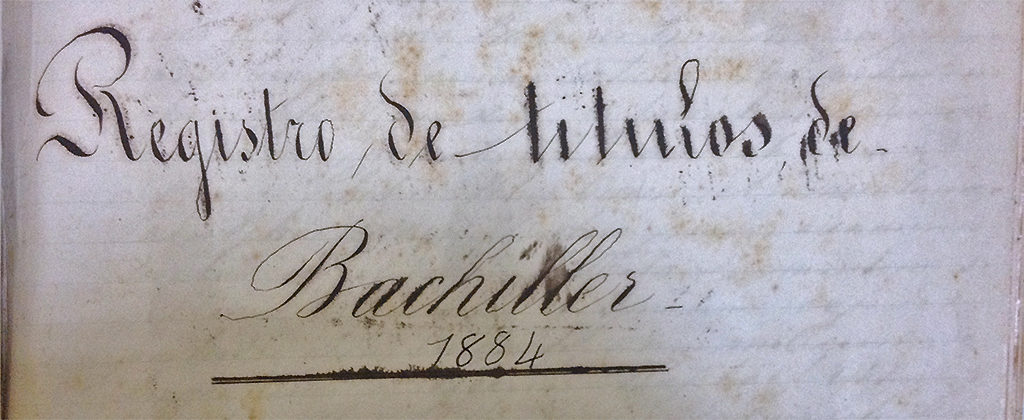 Registro de titulos de
Bachiller
1884